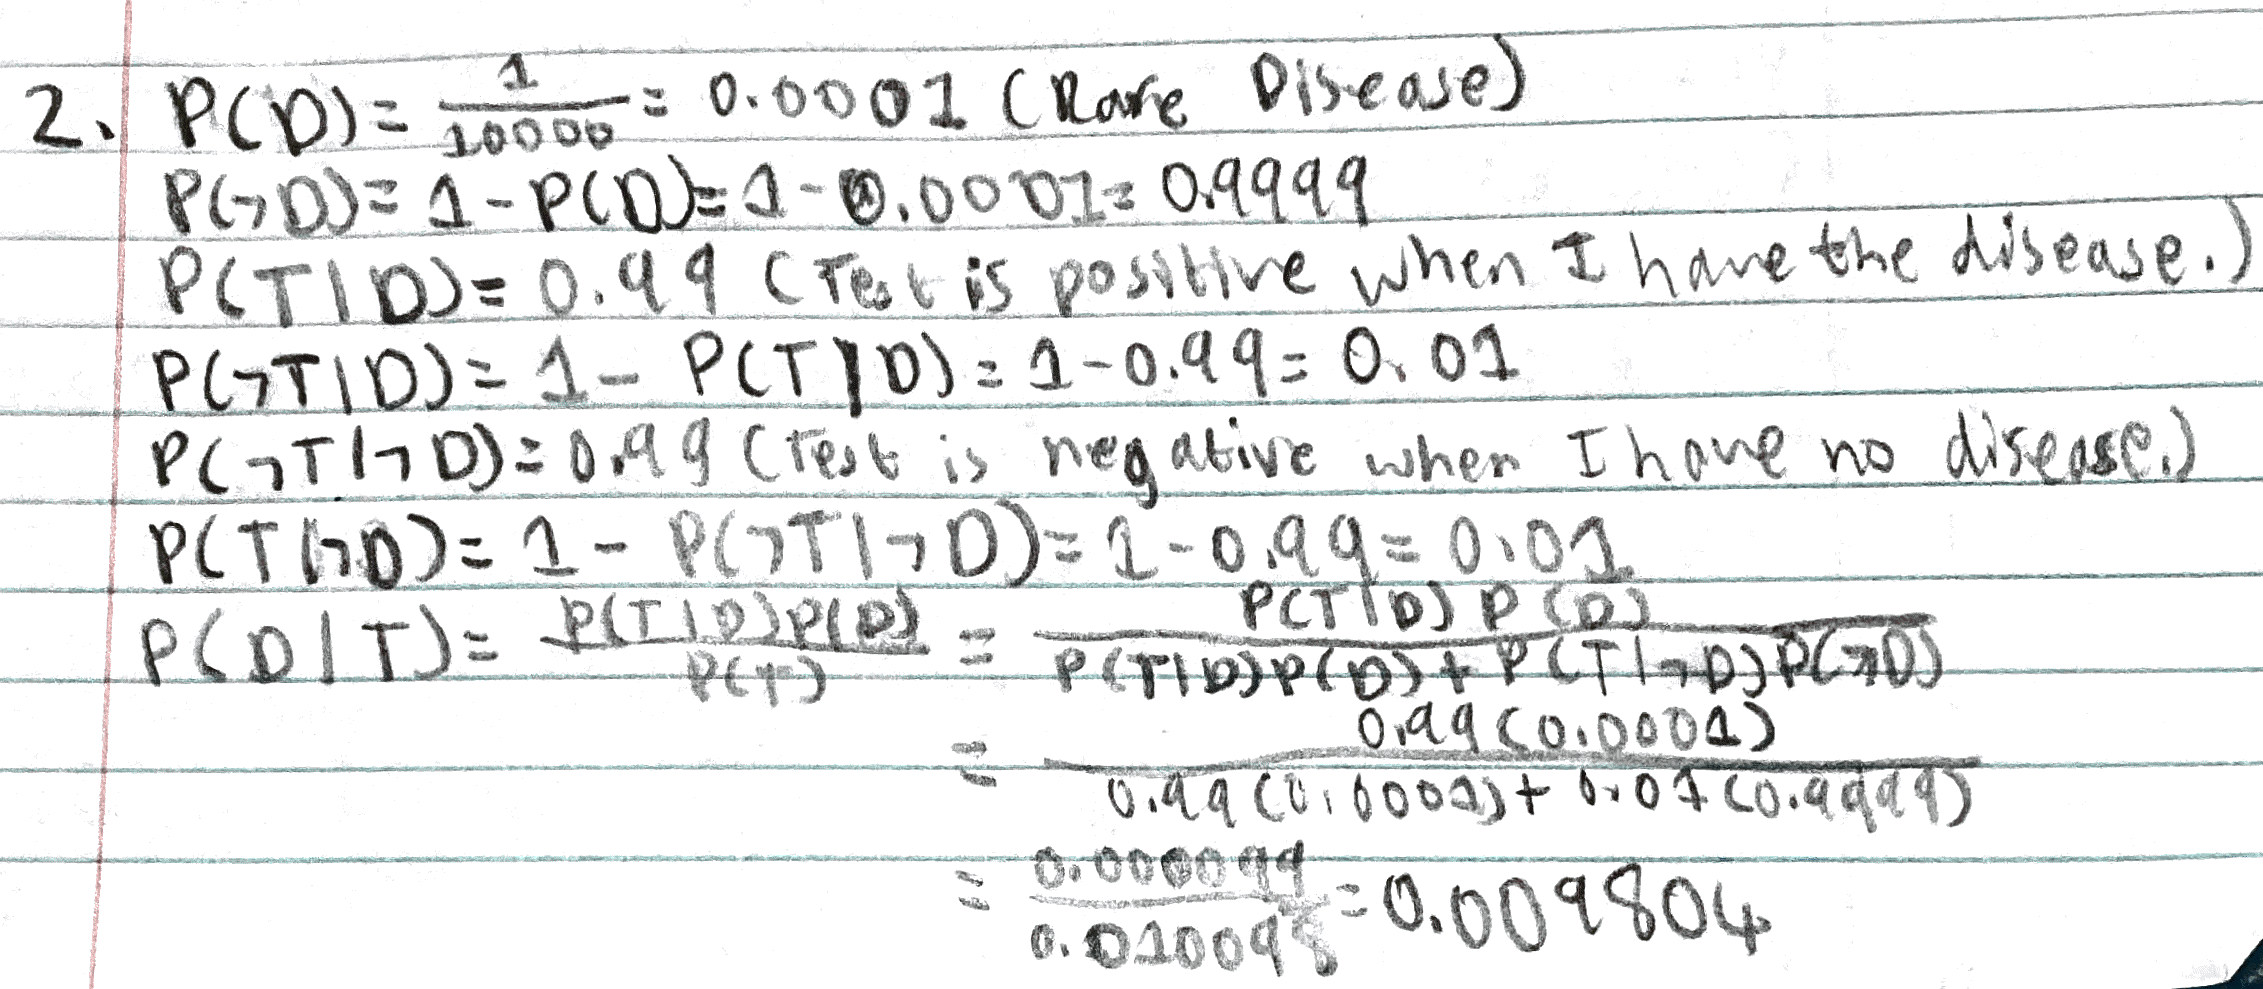 2. P(D) = 1/10000 = 0.0001 (Rare Disease)
P(¬D) = 1 - P(D) = 1 - 0.0001 = 0.9999
P(T|D) = 0.99 (Test is positive when I have the disease.)
P(¬T|D) = 1 - P(T|D) = 1 - 0.99 = 0.01
P(¬T|¬D) = 0.99 (Test is negative when I have no disease.)
P(T|¬D) = 1 - P(¬T|¬D) = 1 - 0.99 = 0.01
P(D|T) = P(T|D)P(D)/P(T) = P(T|D)P(D)/(P(T|D)P(D) + P(T|¬D)P(¬D))
= 0.99(0.0001)/(0.99(0.0001) + 0.01(0.9999))
= 0.000099/0.010098 = 0.009804